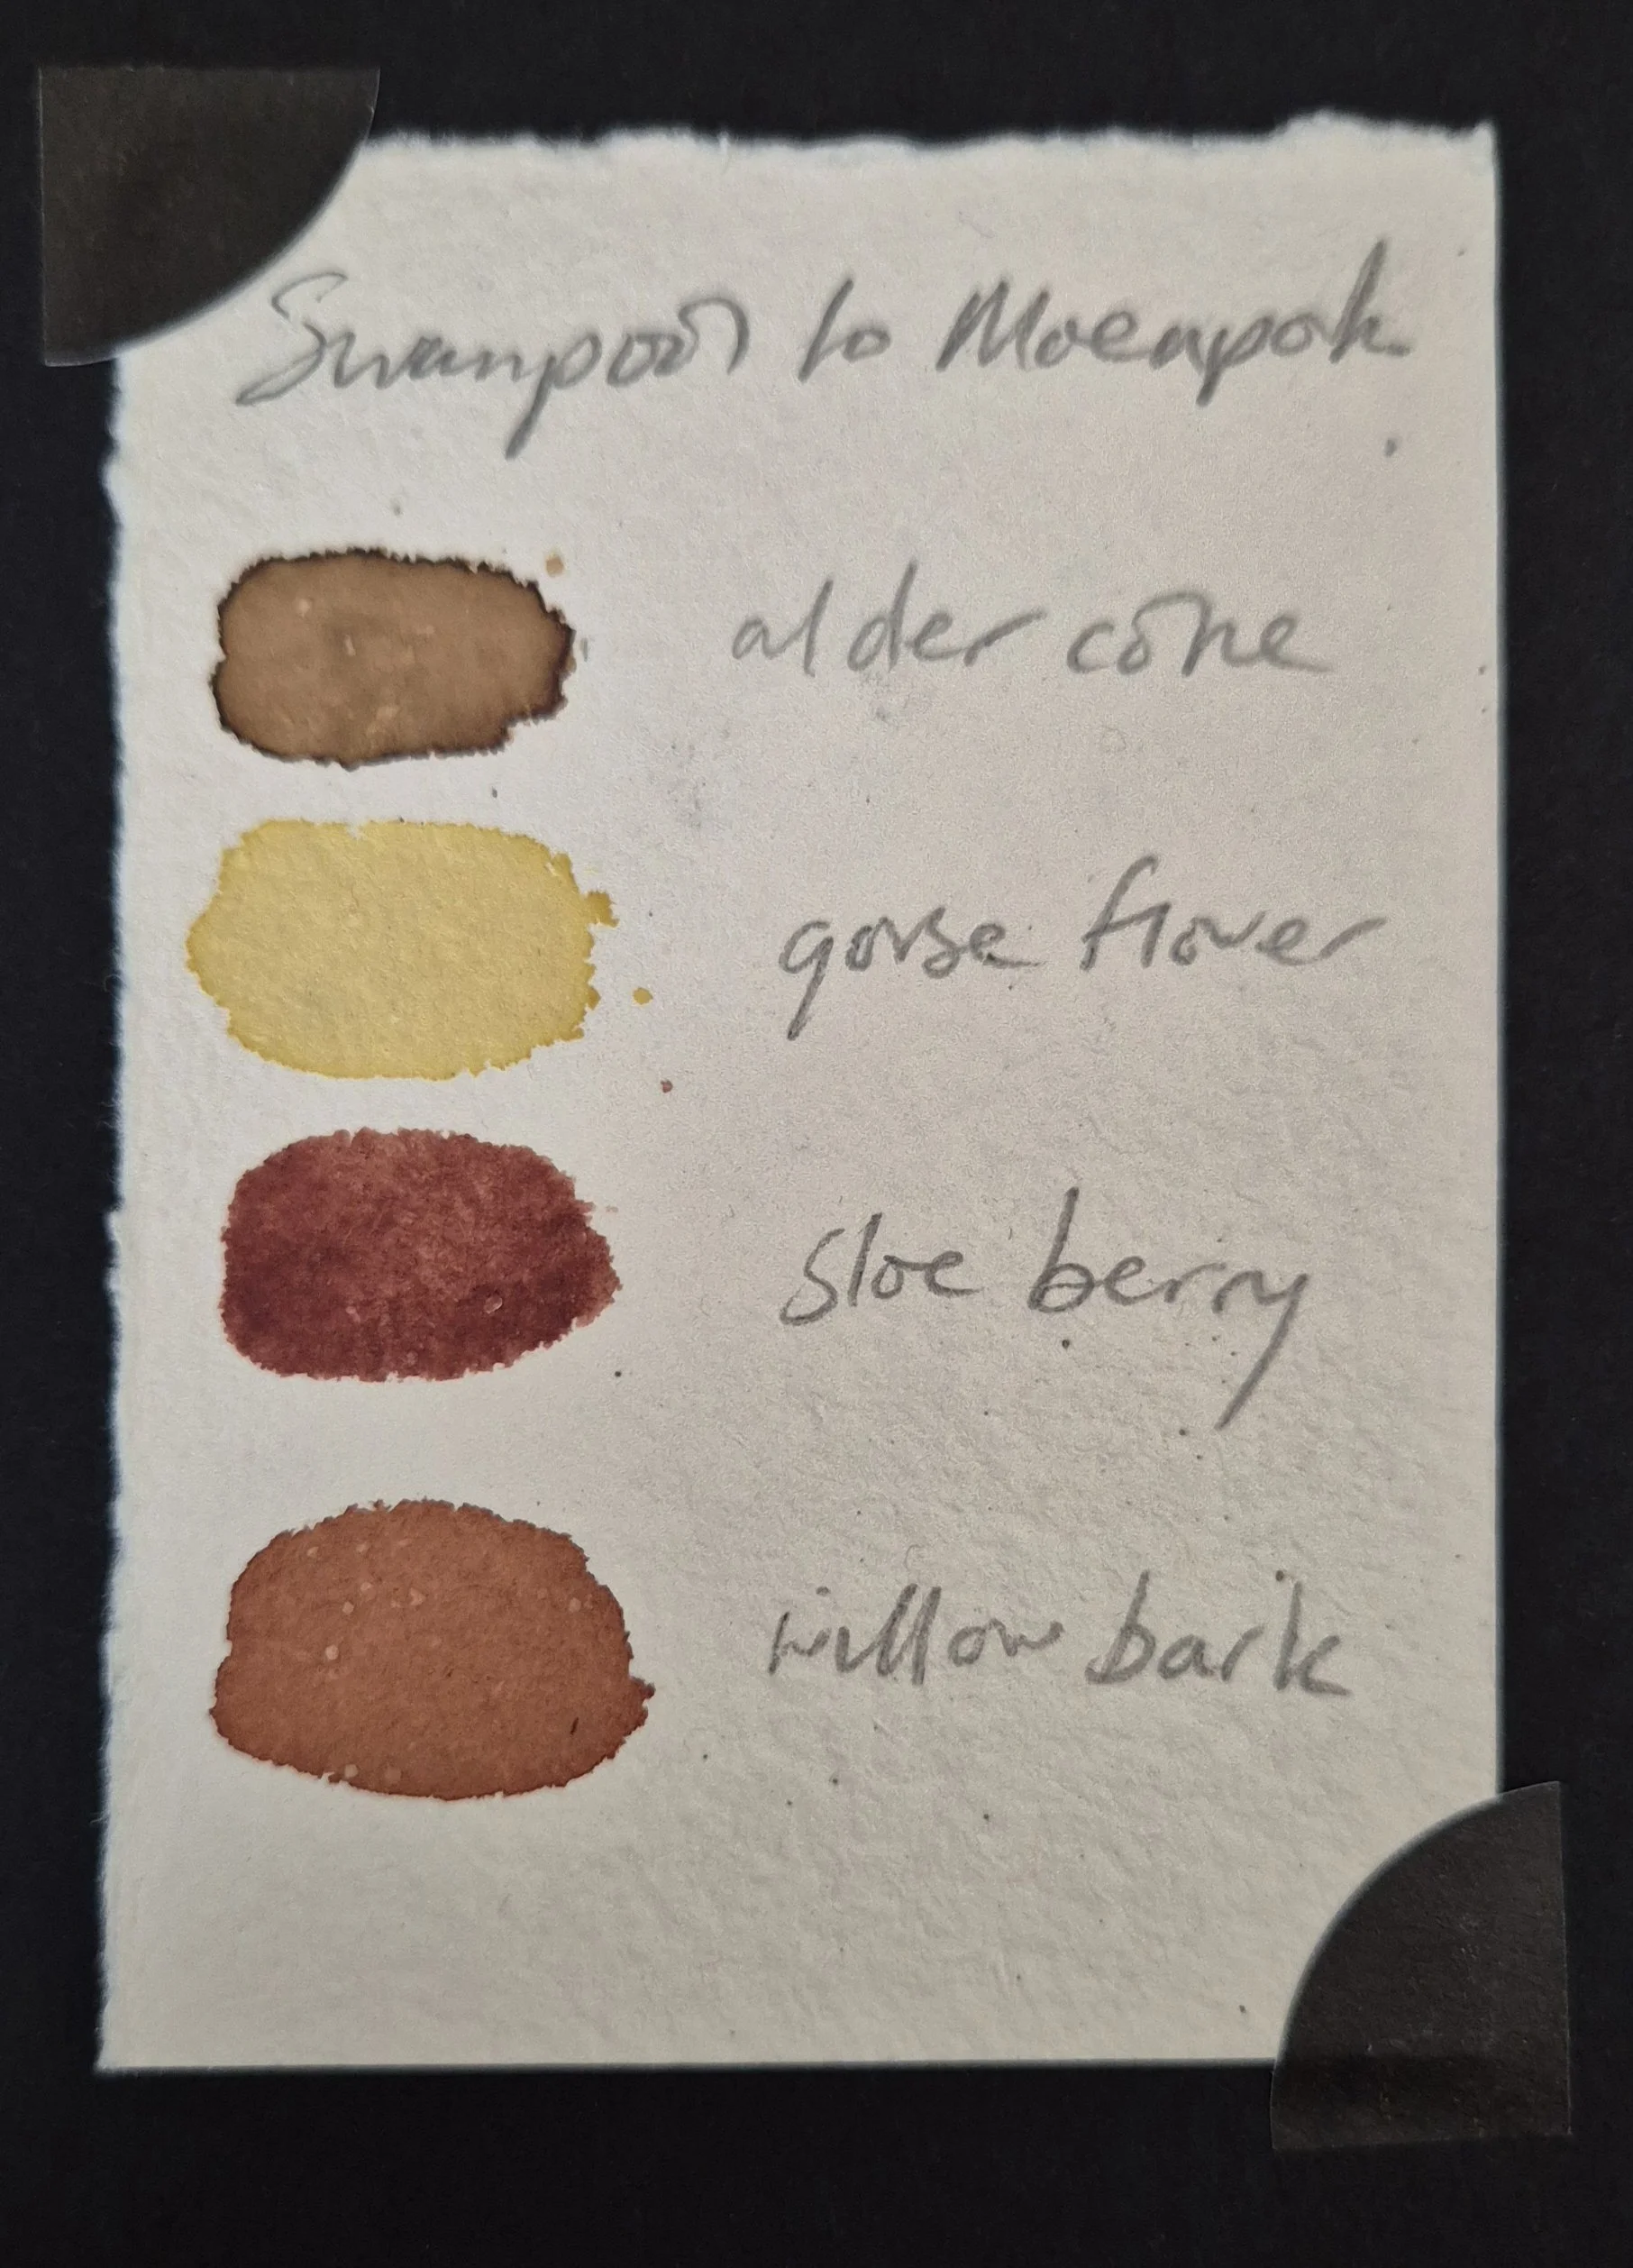 Swanpool to Maenporth
alder cone
gorse flower
sloe berry
willow bark